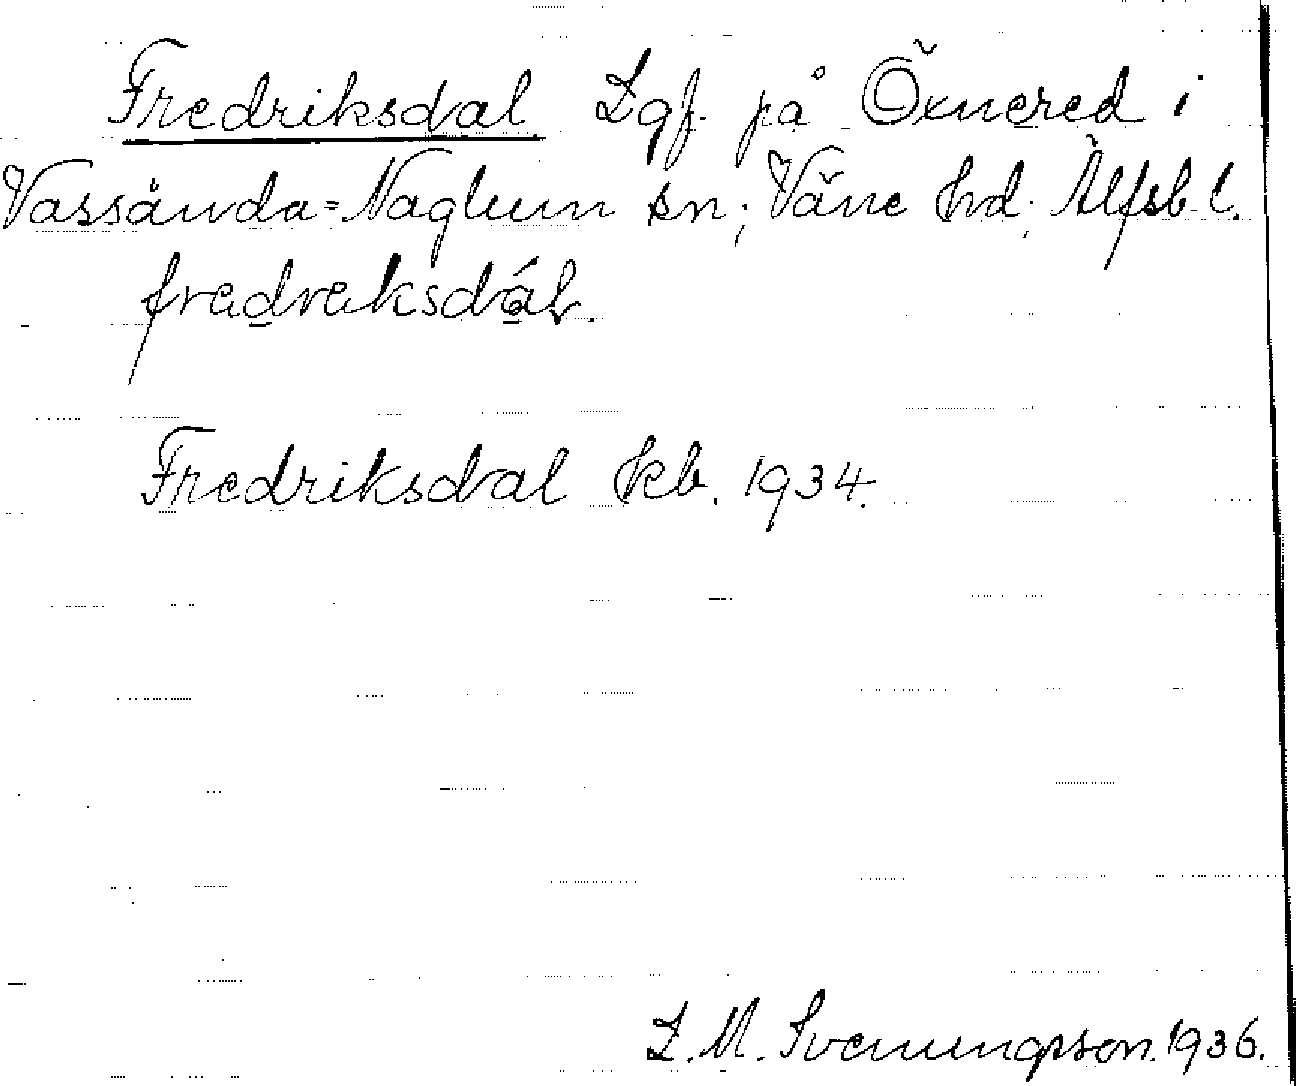 Fredriksdal Lgf. på Öxnered i
Vassända-Naglum sn; Väne hd; Älfsb l.
fredreksdál.
Fredriksdal kb. 1934.
L. M. Svenungsson. 1936.